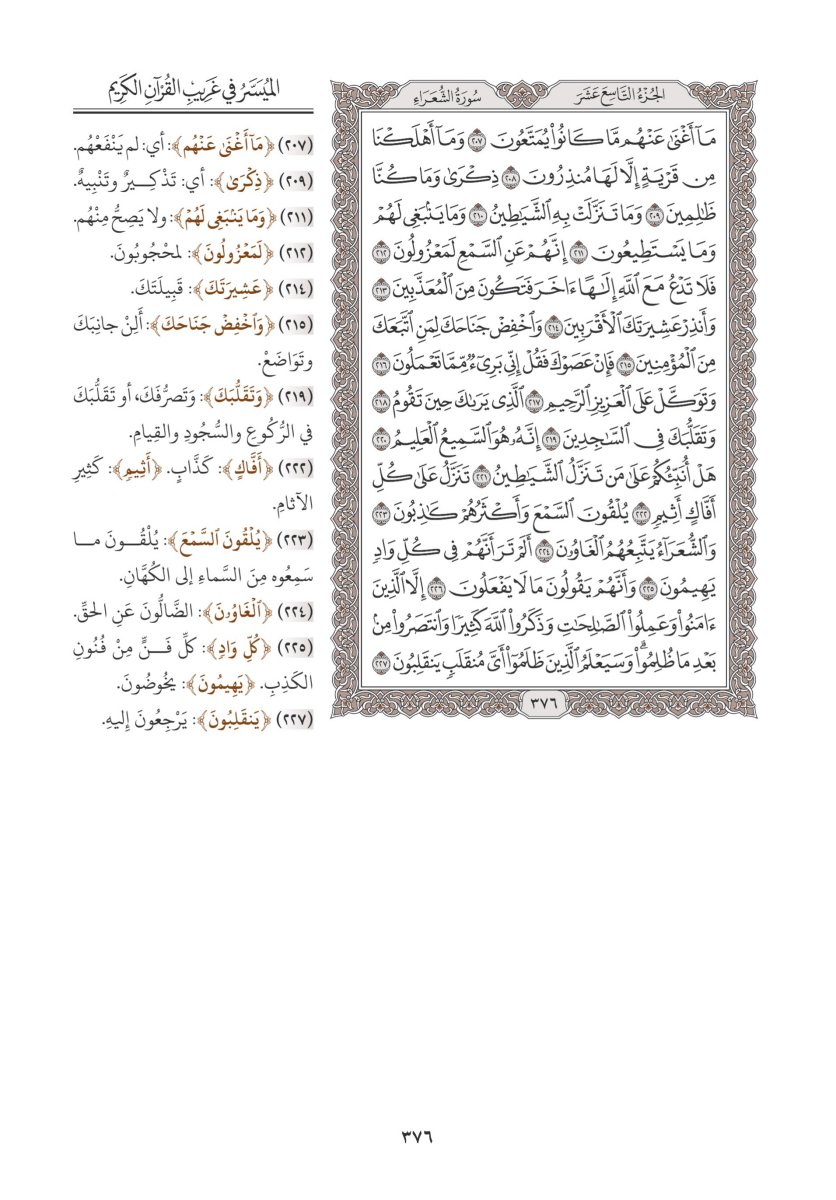 الجُزْءُ التَّاسِعَ عَشَرَ
سُورَةُ الشُّعَرَاءِ
مَآ أَغْنَىٰ عَنْهُم مَّا كَانُوا۟ يُمَتَّعُونَ ٢٠٧ وَمَآ أَهْلَكْنَا
مِن قَرْيَةٍ إِلَّا لَهَا مُنذِرُونَ ٢٠٨ ذِكْرَىٰ وَمَا كُنَّا
ظَٰلِمِينَ ٢٠٩ وَمَا تَنَزَّلَتْ بِهِ ٱلشَّيَٰطِينُ ٢١٠ وَمَا يَنۢبَغِى لَهُمْ
وَمَا يَسْتَطِيعُونَ ٢١١ إِنَّهُمْ عَنِ ٱلسَّمْعِ لَمَعْزُولُونَ ٢١٢
فَلَا تَدْعُ مَعَ ٱللَّهِ إِلَٰهًا ءَاخَرَ فَتَكُونَ مِنَ ٱلْمُعَذَّبِينَ ٢١٣
وَأَنذِرْ عَشِيرَتَكَ ٱلْأَقْرَبِينَ ٢١٤ وَٱخْفِضْ جَنَاحَكَ لِمَنِ ٱتَّبَعَكَ
مِنَ ٱلْمُؤْمِنِينَ ٢١٥ فَإِنْ عَصَوْكَ فَقُلْ إِنِّى بَرِىٓءٌ مِّمَّا تَعْمَلُونَ ٢١٦
وَتَوَكَّلْ عَلَى ٱلْعَزِيزِ ٱلرَّحِيمِ ٢١٧ ٱلَّذِى يَرَىٰكَ حِينَ تَقُومُ ٢١٨
وَتَقَلُّبَكَ فِى ٱلسَّٰجِدِينَ ٢١٩ إِنَّهُۥ هُوَ ٱلسَّمِيعُ ٱلْعَلِيمُ ٢٢٠
هَلْ أُنَبِّئُكُمْ عَلَىٰ مَن تَنَزَّلُ ٱلشَّيَٰطِينُ ٢٢١ تَنَزَّلُ عَلَىٰ كُلِّ
أَفَّاكٍ أَثِيمٍ ٢٢٢ يُلْقُونَ ٱلسَّمْعَ وَأَكْثَرُهُمْ كَٰذِبُونَ ٢٢٣
وَٱلشُّعَرَآءُ يَتَّبِعُهُمُ ٱلْغَاوُۥنَ ٢٢٤ أَلَمْ تَرَ أَنَّهُمْ فِى كُلِّ وَادٍ
يَهِيمُونَ ٢٢٥ وَأَنَّهُمْ يَقُولُونَ مَا لَا يَفْعَلُونَ ٢٢٦ إِلَّا ٱلَّذِينَ
ءَامَنُوا۟ وَعَمِلُوا۟ ٱلصَّٰلِحَٰتِ وَذَكَرُوا۟ ٱللَّهَ كَثِيرًا وَٱنتَصَرُوا۟ مِنۢ
بَعْدِ مَا ظُلِمُوا۟ ۗ وَسَيَعْلَمُ ٱلَّذِينَ ظَلَمُوٓا۟ أَىَّ مُنقَلَبٍ يَنقَلِبُونَ ٢٢٧
٣٧٦
المُيَسَّرُ في غَرِيبِ القُرْآنِ الكَرِيمِ
(٢٠٧) ﴿مَآ أَغْنَىٰ عَنْهُم﴾: أي: لم يَنْفَعْهُم.
(٢٠٩) ﴿ذِكْرَىٰ﴾: أي: تَذْكِيرٌ وتَنْبِيهٌ.
(٢١١) ﴿وَمَا يَنۢبَغِى لَهُمْ﴾: ولا يَصِحُّ مِنْهُم.
(٢١٢) ﴿لَمَعْزُولُونَ﴾: لمحْجُوبُونَ.
(٢١٤) ﴿عَشِيرَتَكَ﴾: قَبِيلَتَكَ.
(٢١٥) ﴿وَٱخْفِضْ جَنَاحَكَ﴾: أَلِنْ جانِبَكَ
وتَوَاضَعْ.
(٢١٩) ﴿وَتَقَلُّبَكَ﴾: وَتَصَرُّفَكَ، أو تَقَلُّبَكَ
في الرُّكُوعِ والسُّجُودِ والقِيامِ.
(٢٢٢) ﴿أَفَّاكٍ﴾: كَذَّابٍ. ﴿أَثِيمٍ﴾: كَثِيرِ
الآثامِ.
(٢٢٣) ﴿يُلْقُونَ ٱلسَّمْعَ﴾: يُلْقُونَ ما
سَمِعُوه مِنَ السَّماءِ إلى الكُهَّانِ.
(٢٢٤) ﴿ٱلْغَاوُۥنَ﴾: الضَّالُّونَ عَنِ الحَقِّ.
(٢٢٥) ﴿كُلِّ وَادٍ﴾: كلِّ فَنٍّ مِنْ فُنُونِ
الكَذِبِ. ﴿يَهِيمُونَ﴾: يخُوضُونَ.
(٢٢٧) ﴿يَنقَلِبُونَ﴾: يَرْجِعُونَ إليهِ.
٣٧٦